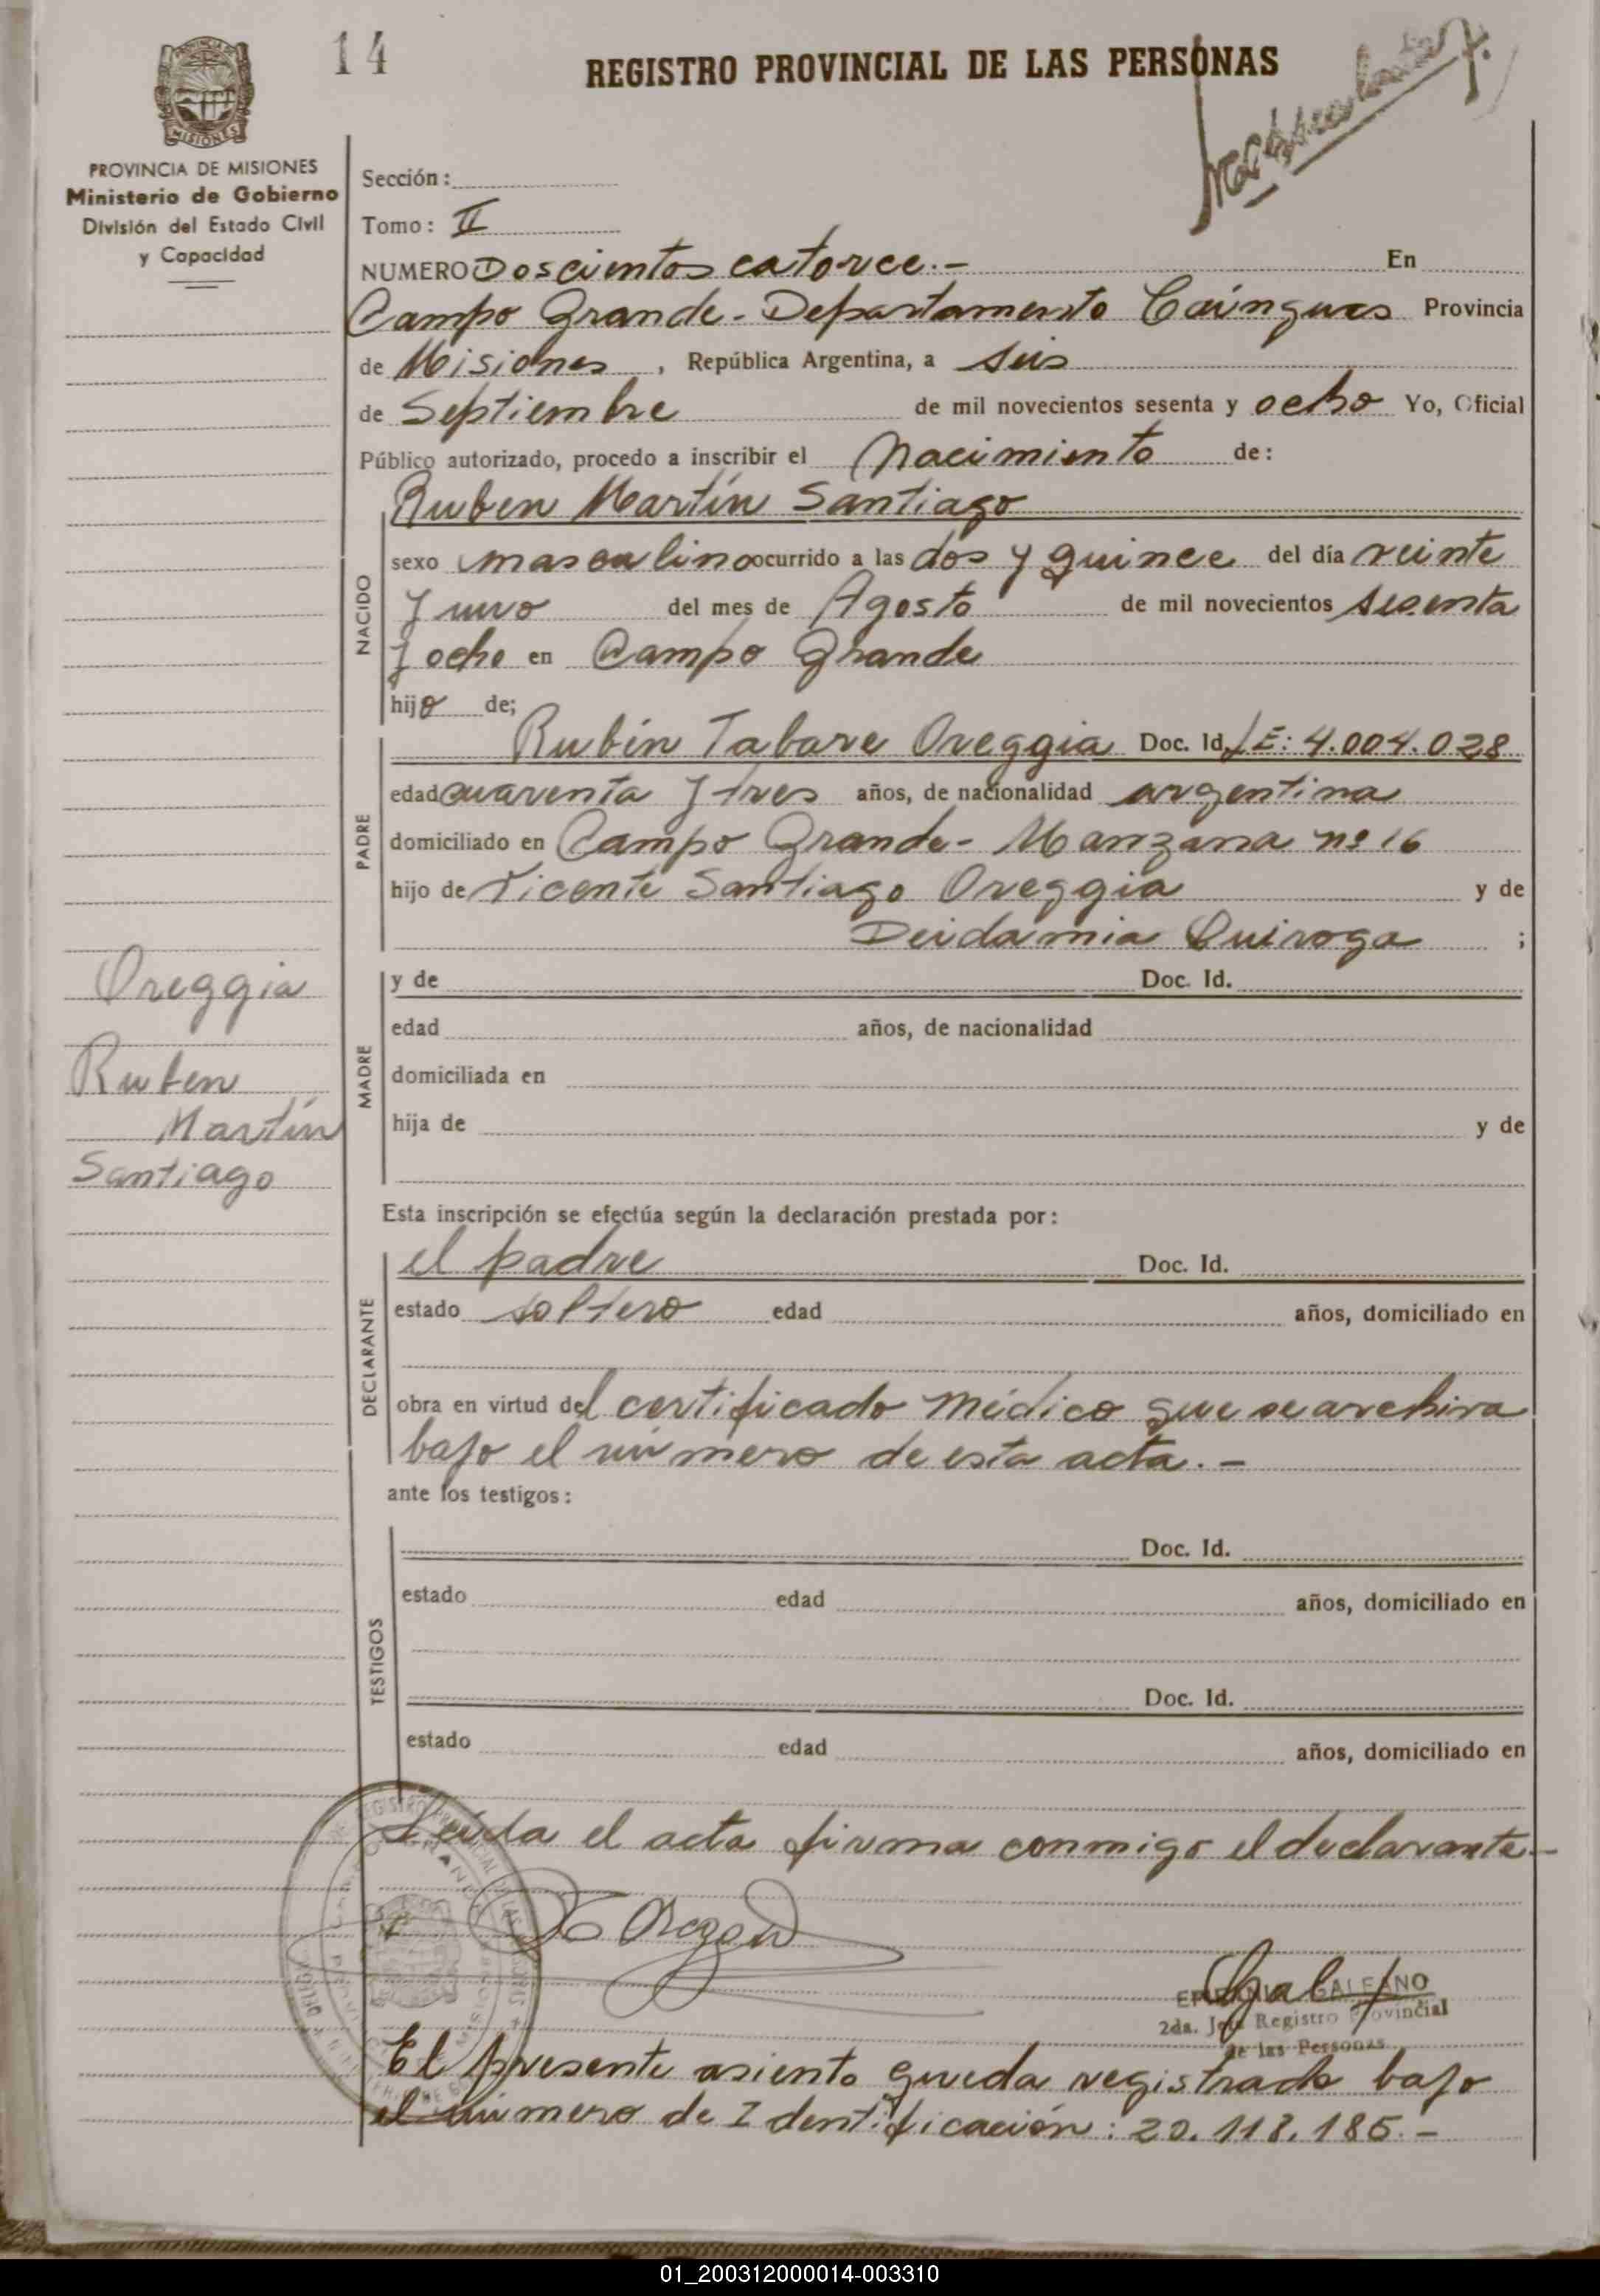 14
REGISTRO PROVINCIAL DE LAS PERSONAS
MISIONES
PROVINCIA DE MISIONES
Ministerio de Gobierno
División del Estado Civil
y Capacidad
Sección:
Tomo: II
NUMERO Doscientos catorce.- En
Campo Grande - Departamento Cainguas Provincia
de Misiones, República Argentina, a seis
de Septiembre de mil novecientos sesenta y ocho Yo, Oficial
Público autorizado, procedo a inscribir el Nacimiento de:
NACIDO
Ruben Martín Santiago
sexo masculino ocurrido a las dos y quince del día veinte
y uno del mes de Agosto de mil novecientos sesenta
y ocho en Campo Grande
hijo de;
PADRE
Rubén Tabare Oreggia Doc. Id. LE: 4.004.028
edad cuarenta y tres años, de nacionalidad argentina
domiciliado en Campo Grande - Manzana nº 16
hijo de Vicente Santiago Oreggia y de
Deidamia Quiroga ;
Oreggia
Ruben
Martín
Santiago
MADRE
y de Doc. Id.
edad años, de nacionalidad
domiciliada en
hija de y de
Esta inscripción se efectúa según la declaración prestada por:
DECLARANTE
el padre Doc. Id.
estado soltero edad años, domiciliado en
obra en virtud del certificado médico que se archiva
bajo el número de esta acta.-
ante los testigos:
TESTIGOS
Doc. Id.
estado edad años, domiciliado en
Doc. Id.
estado edad años, domiciliado en
Leída el acta firma conmigo el declarante.-
GALEANO
2da. Jefe Registro Provincial
de las Personas
El presente asiento queda registrado bajo
el número de Identificación: 20.118.185.-
01_200312000014-003310